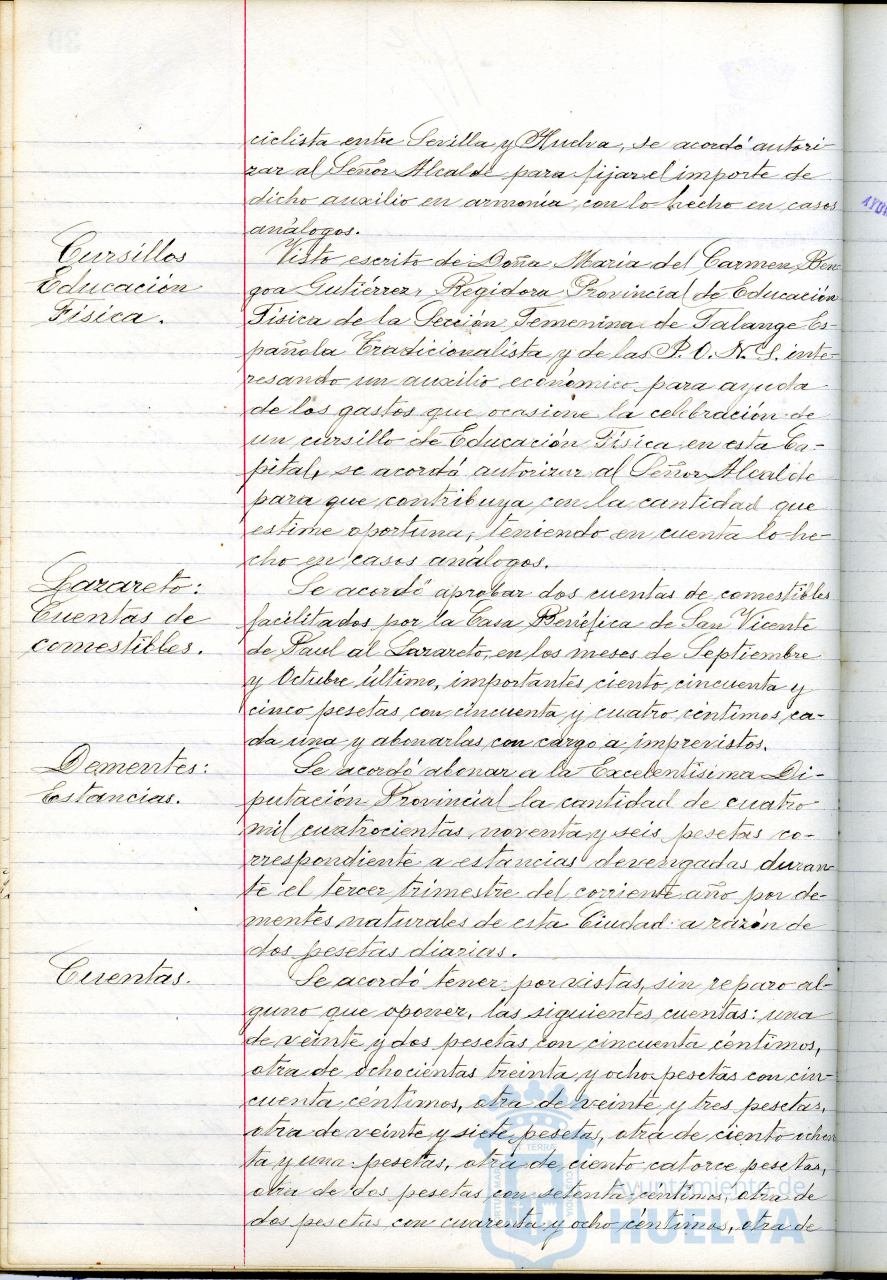 ciclista entre Sevilla y Huelva, se acordó autori-
zar al Señor Alcalde para fijar el importe de
dicho auxilio en armonía con lo hecho en casos
análogos.
Cursillos
Educación
Física.
Visto escrito de Doña María del Carmen Ben-
goa Gutiérrez, Regidora Provincial de Educación
Física de la Sección Femenina de Falange Es-
pañola Tradicionalista y de las J. O. N. S. inte-
resando un auxilio económico para ayuda
de los gastos que ocasione la celebración de
un cursillo de Educación Física en esta Ca-
pital, se acordó autorizar al Señor Alcalde
para que contribuya con la cantidad que
estime oportuna, teniendo en cuenta lo he-
cho en casos análogos.
Lazareto:
Cuentas de
comestibles.
Se acordó aprobar dos cuentas de comestibles
facilitados por la Casa Benéfica de San Vicente
de Paul al Lazareto, en los meses de Septiembre
y Octubre último, importantes ciento cincuenta y
cinco pesetas con cincuenta y cuatro céntimos ca-
da una y abonarlas con cargo a imprevistos.
Dementes:
Estancias.
Se acordó abonar a la Excelentísima Di-
putación Provincial la cantidad de cuatro
mil cuatrocientas noventa y seis pesetas co-
rrespondiente a estancias devengadas duran-
te el tercer trimestre del corriente año por de-
mentes naturales de esta Ciudad a razón de
dos pesetas diarias.
Cuentas.
Se acordó tener por vistas, sin reparo al-
guno que oponer, las siguientes cuentas: una
de veinte y dos pesetas con cincuenta céntimos,
otra de ochocientas treinta y ocho pesetas con cin-
cuenta céntimos, otra de veinte y tres pesetas,
otra de veinte y siete pesetas, otra de ciento ochen
ta y una pesetas, otra de ciento catorce pesetas,
otra de dos pesetas con setenta céntimos, otra de
dos pesetas con cuarenta y ocho céntimos, otra de
Ayuntamiento de
HUELVA